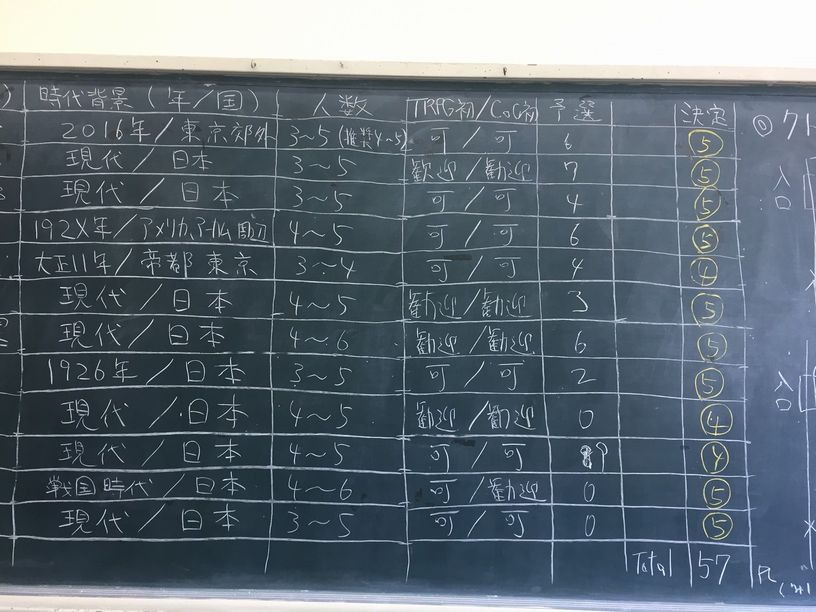 時代背景(年/国) 人数 TRPG初/CoC初 予選 決定
2016年/東京郊外 3~5(推奨4~5) 可/可 6 5
現代/日本 3~5 歓迎/歓迎 7 5
現代/日本 3~5 可/可 4 5
192X年/アメリカ,アーカム周辺 4~5 可/可 6 5
大正11年/帝都東京 3~4 可/可 4 4
現代/日本 4~5 歓迎/歓迎 3 5
現代/日本 4~6 歓迎/歓迎 6 5
1926年/日本 3~5 可/可 2 5
現代/日本 4~5 歓迎/歓迎 0 4
現代/日本 4~5 可/可 9 4
戦国時代/日本 4~6 可/歓迎 0 5
現代/日本 3~5 可/可 0 5
Total 57
入口
入口